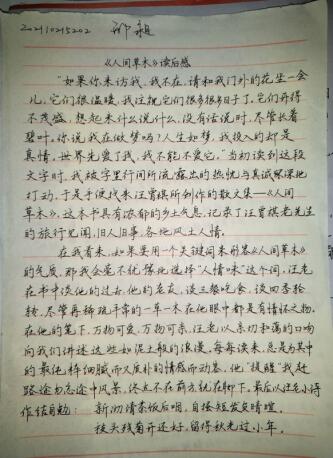 202110215202 邢昶
《人间草木》读后感
“如果你来访我,我不在,请和我门外的花坐一会
儿,它们很温暖,我注视它们很多很多日子了。它们开得
不茂盛,想起来什么说什么,没有话说时,尽管长着
碧叶。你说我在做梦吗?人生如梦,我投入的却是
真情。世界先爱了我,我不能不爱它。”当初读到这段
文字时,我被字里行间所流露出的热忱与真诚深深地
打动,于是乎便找来汪曾祺所创作的散文集—《人间
草木》。这本书具有浓郁的乡土气息,记录了汪曾祺老先生
的旅行见闻,旧人旧事,各地风土人情。
在我看来,如果要用一个关键词来形容《人间草木》
的气质,那我会毫不犹豫地选择“人情味”这个词,汪老
在书中谈他的过去,他的老友,谈三餐吃食,谈四季轮
转,尽管再稀疏平常的一草一木在他眼中都是有情怀之物,
在他的笔下,万物可爱,万物可亲,汪老以亲切和蔼的口吻
向我们讲述这些如泥土般的浪漫。每每读来,总是为其中
的最纯粹细腻而又质朴的情感而动容。他“提醒”我赶
路途勿忘途中风景,终点不在前方就在脚下。最后以汪老小诗
作结自勉: 新沏清茶饭后烟,自搔短发负晴暄,
枝头残菊开还好,留得秋光过小年。